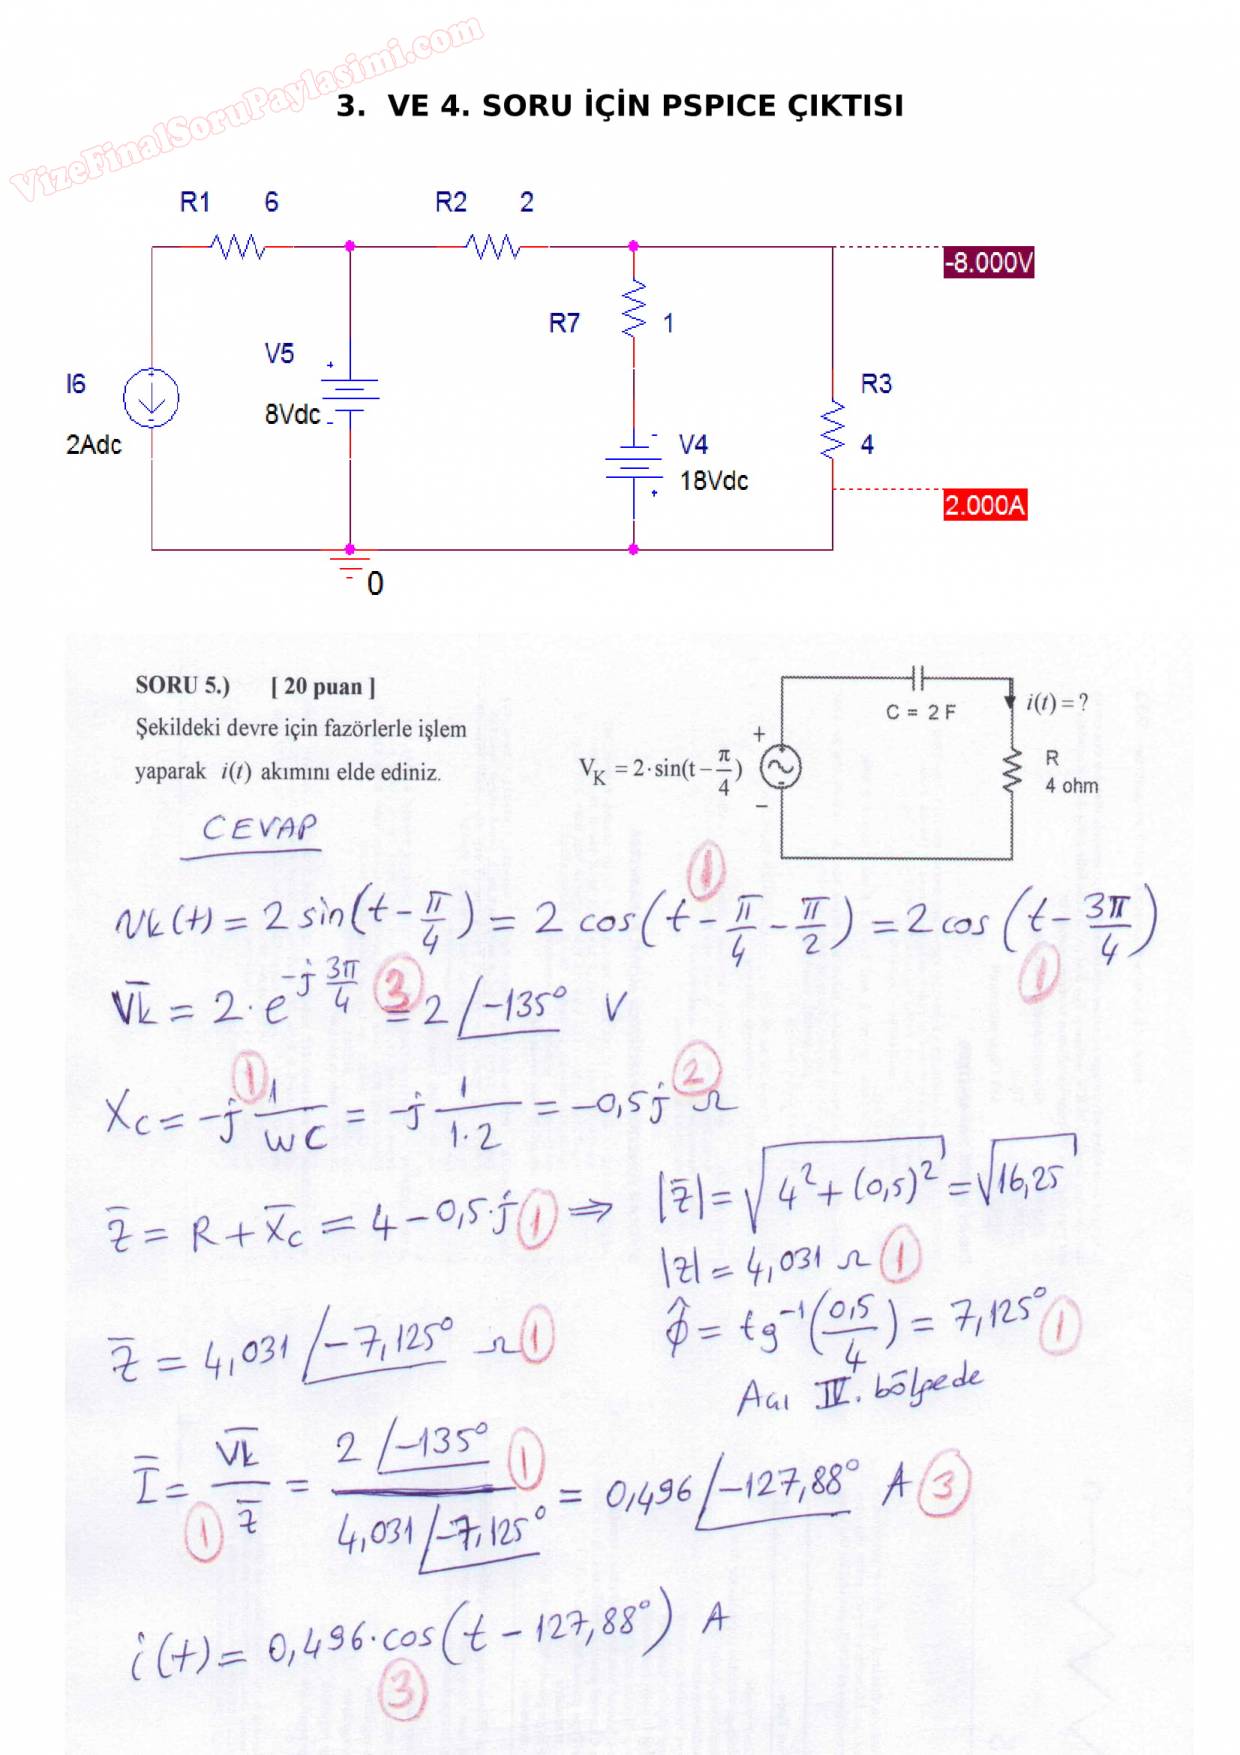 VizeFinalSoruPaylasimi.com
3. VE 4. SORU İÇİN PSPICE ÇIKTISI
R1 6 R2 2
-8.000V
R7 1
V5
I6 8Vdc R3
2Adc V4 4
18Vdc
2.000A
0
SORU 5.) [ 20 puan ]
Şekildeki devre için fazörlerle işlem
yaparak i(t) akımını elde ediniz.
C = 2 F
i(t) = ?
V_K = 2·sin(t − π/4)
R
4 ohm
CEVAP
Vk(t) = 2 sin(t − π/4) = 2 cos(t − π/4 − π/2) = 2 cos(t − 3π/4)
1 1
V̄k = 2·e^(−j 3π/4) = 2 /−135° V
3
Xc = −j 1/wC = −j 1/1·2 = −0,5j Ω
1 2
Z̄ = R + X̄c = 4 − 0,5·j ⇒ |Z̄| = √(4² + (0,5)²) = √16,25
1
|Z| = 4,031 Ω
1
Z̄ = 4,031 /−7,125° Ω
1
φ̂ = tg⁻¹(0,5/4) = 7,125°
1
Açı IV. bölgede
Ī = V̄k/Z̄ = 2 /−135° / 4,031 /−7,125° = 0,496 /−127,88° A
1 1 3
i(t) = 0,496·cos(t − 127,88°) A
3